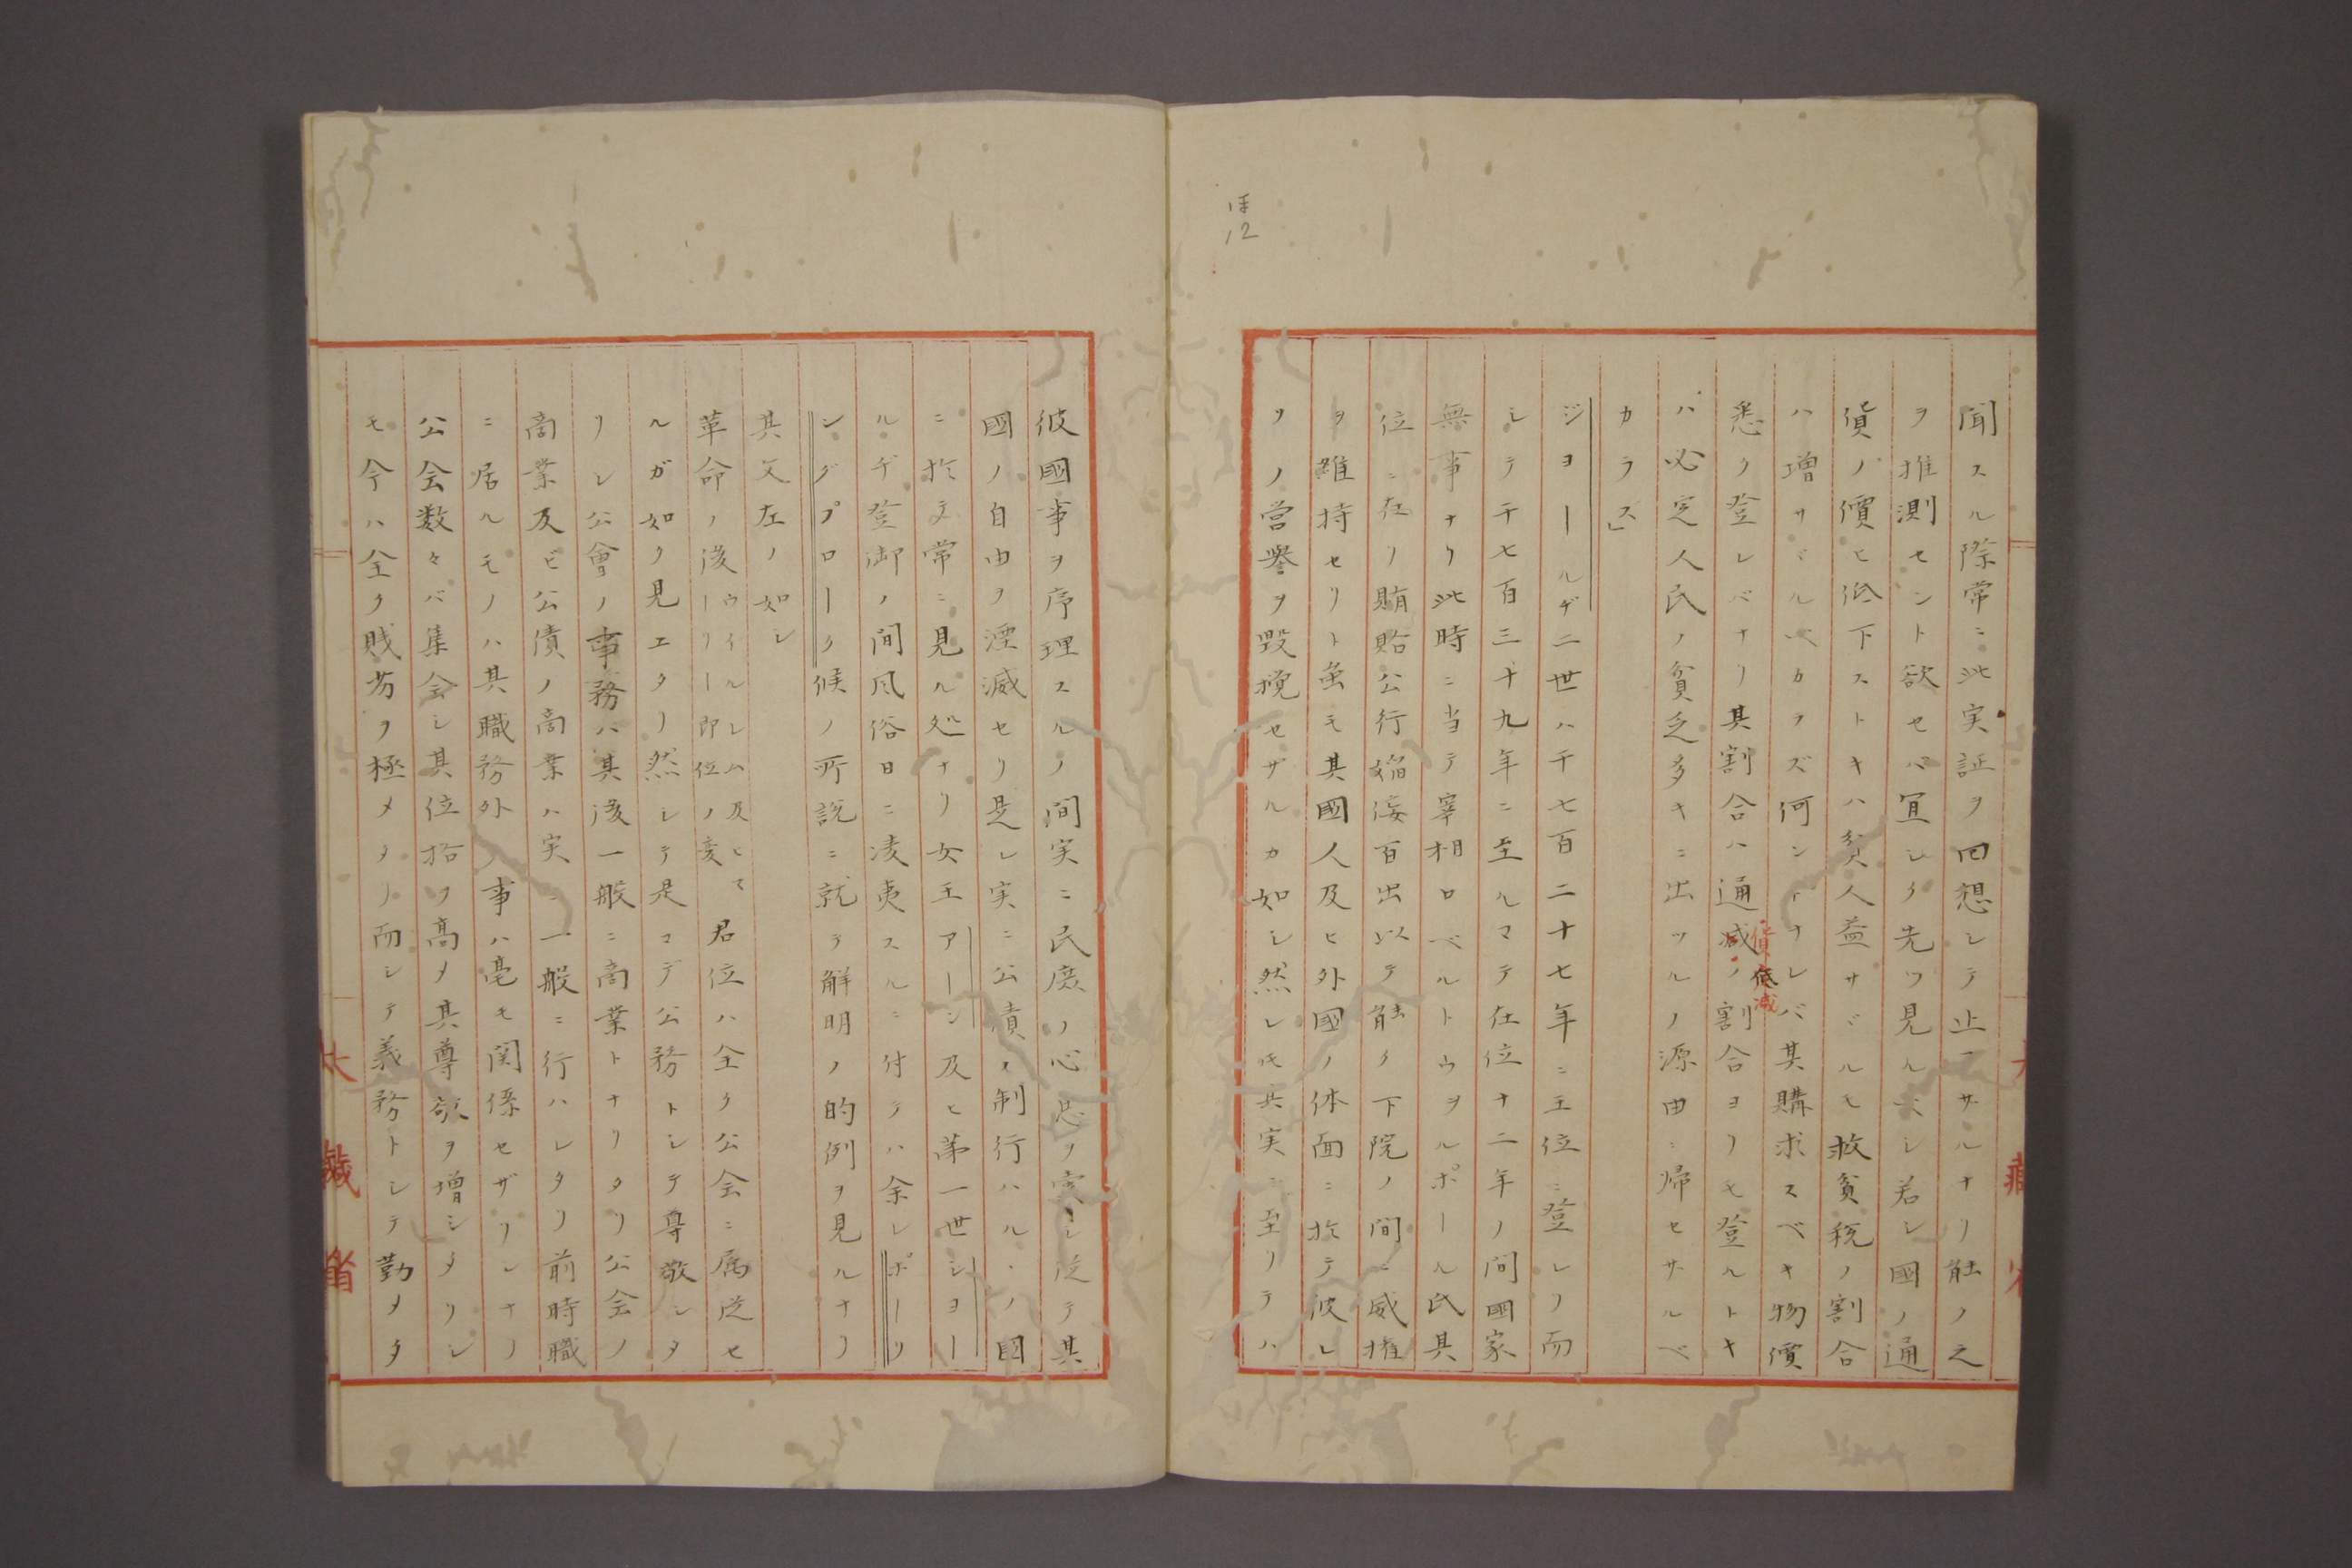 聞スル際常ニ此実証ヲ回想シテ止マサルナリ能ク之
ヲ推測セント欲セバ宜シク先ツ見ルベシ若シ國ノ通
貨ノ價ヒ低下ストキハ貧人益サヾルモ救貧税ノ割合
ハ増サヾルベカラズ何ントナレバ其購求スベキ物價
貨 低減
悉ク登レバナリ其割合ハ通減ノ割合ヨリモ登ルトキ
ハ必定人民ノ貧乏多キニ出ツルノ源由ニ帰セサルベ
カラズ」
ジヨールヂ二世ハ千七百二十七年ニ王位ニ登レリ而
シテ千七百三十九年ニ至ルマテ在位十二年ノ間國家
無事ナリ此時ニ当テ宰相ロベルトウヲルポール氏其
位ニ在リ賄賂公行 百出以テ能ク下院ノ間ニ威権
ヲ維持セリト虽モ其國人及ヒ外國ノ体面ニ於テ彼レ
ノ営譽ヲ毀損セザルカ如シ然レ氏其実ニ至リテハ
ほ
12
彼國事ヲ序理スルノ間実ニ民庶ノ心思ヲ シ従テ其
國ノ自由ヲ湮滅セリ是レ実ニ公債ノ制行ハルヽノ國
ニ於テ常ニ見ル処ナリ女王アーン及ヒ第一世ジヨー
ルヂ登御ノ間風俗日ニ凌夷スルニ付テハ余レボーリ
ングブローク候ノ所説ニ就テ解明ノ的例ヲ見ルナリ
其文左ノ如シ
革命ノ後ウイルレム及ヒマーリー即位ノ変君位ハ全ク公会ニ属従セ
ルガ如ク見エタリ然シテ是マデ公務トシテ尊敬シタ
リシ公會ノ事務ハ其後一般ニ商業トナリタリ公会ノ
商業及ビ公債ノ商業ハ実ニ一般ニ行ハレタリ前時職
ニ居ルモノハ其職務外ノ事ハ毫モ関係セザリシナリ
公会数々バ集会シ其位 ヲ高メ其尊敬ヲ増シタリシ
モ今ハ全ク賎劣ヲ極メタリ而シテ義務トシテ勤メタ
大
藏
省